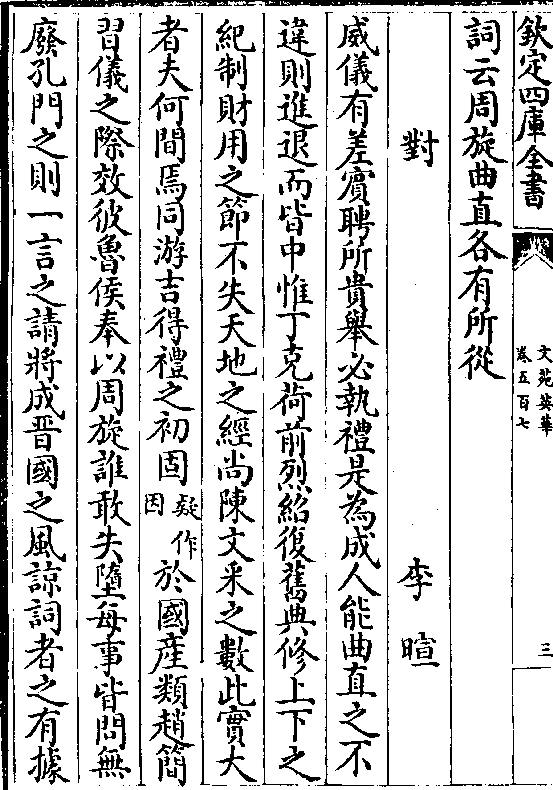 欽定四庫全書
文苑英華
卷五百七
三
詞云周旋曲直各有所從
對 李暄
威儀有差賓聘所貴舉必執禮是為成人能曲直之不
違則進退而皆中惟丁克荷前烈紹復舊典修上下之
紀制財用之節不失天地之經尚陳文采之數此實大
者夫何間焉同游吉得禮之初固疑作因於國產類趙簡
習儀之際效彼魯侯奉以周旋誰敢失墮每事皆問無
廢孔門之則一言之請將成晉國之風諒詞者之有據